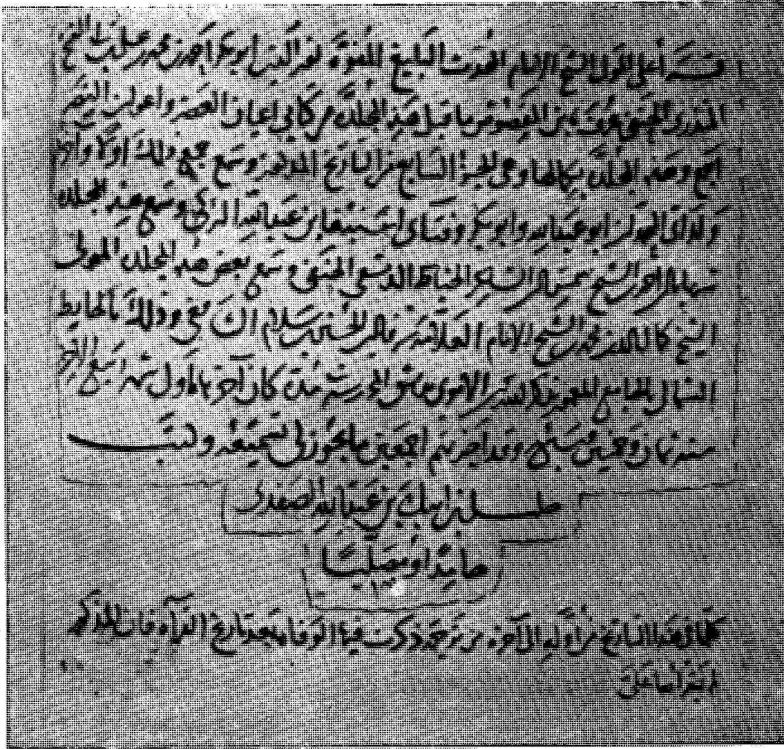 المولى الشيخ الامام المحدث البليغ المفوه فخر الدين ابو بكر احمد بن محمد بن علي
الحنفي ما قبل هذه المجلدة من كتابي اعيان العصر واعوان النصر
اجمع وهذه المجلدة بكمالها وهي الجزء السابع من التاريخ المذكور وسمع جميع ذلك اولا وآخرا
ولداي ابو عبد الله وابو بكر وفتاي اسنبغا بن عبد الله التركي وسمع هذه المجلدة
شهاب الدين احمد بن الشيخ شمس الدين الخياط الدمشقي الحنفي وسمع بعض هذه المجلدة المولى
الشيخ كمال الدين محمد بن الشيخ الامام العلامة شرف الدين الحسين بن سلام الشافعي وذلك بالحايط
الشمالي بالجامع المعمور بذكر الله الاموي بدمشق المحروسة في مدة كان آخرها اول شهر ربيع الآخر
سنة ثمان وخمسين وسبع مئة وقد اجزت لهم اجمعين ما يجوز لي تسميعه وكتب
خليل بن ايبك بن عبد الله الصفدي
حامدا ومصليا
كلما في هذا التاريخ من اوله الى آخره من ترجمة ذكرت فيها الوفاة بعد تاريخ القراءة فان المذكور
لم يقرأها علي